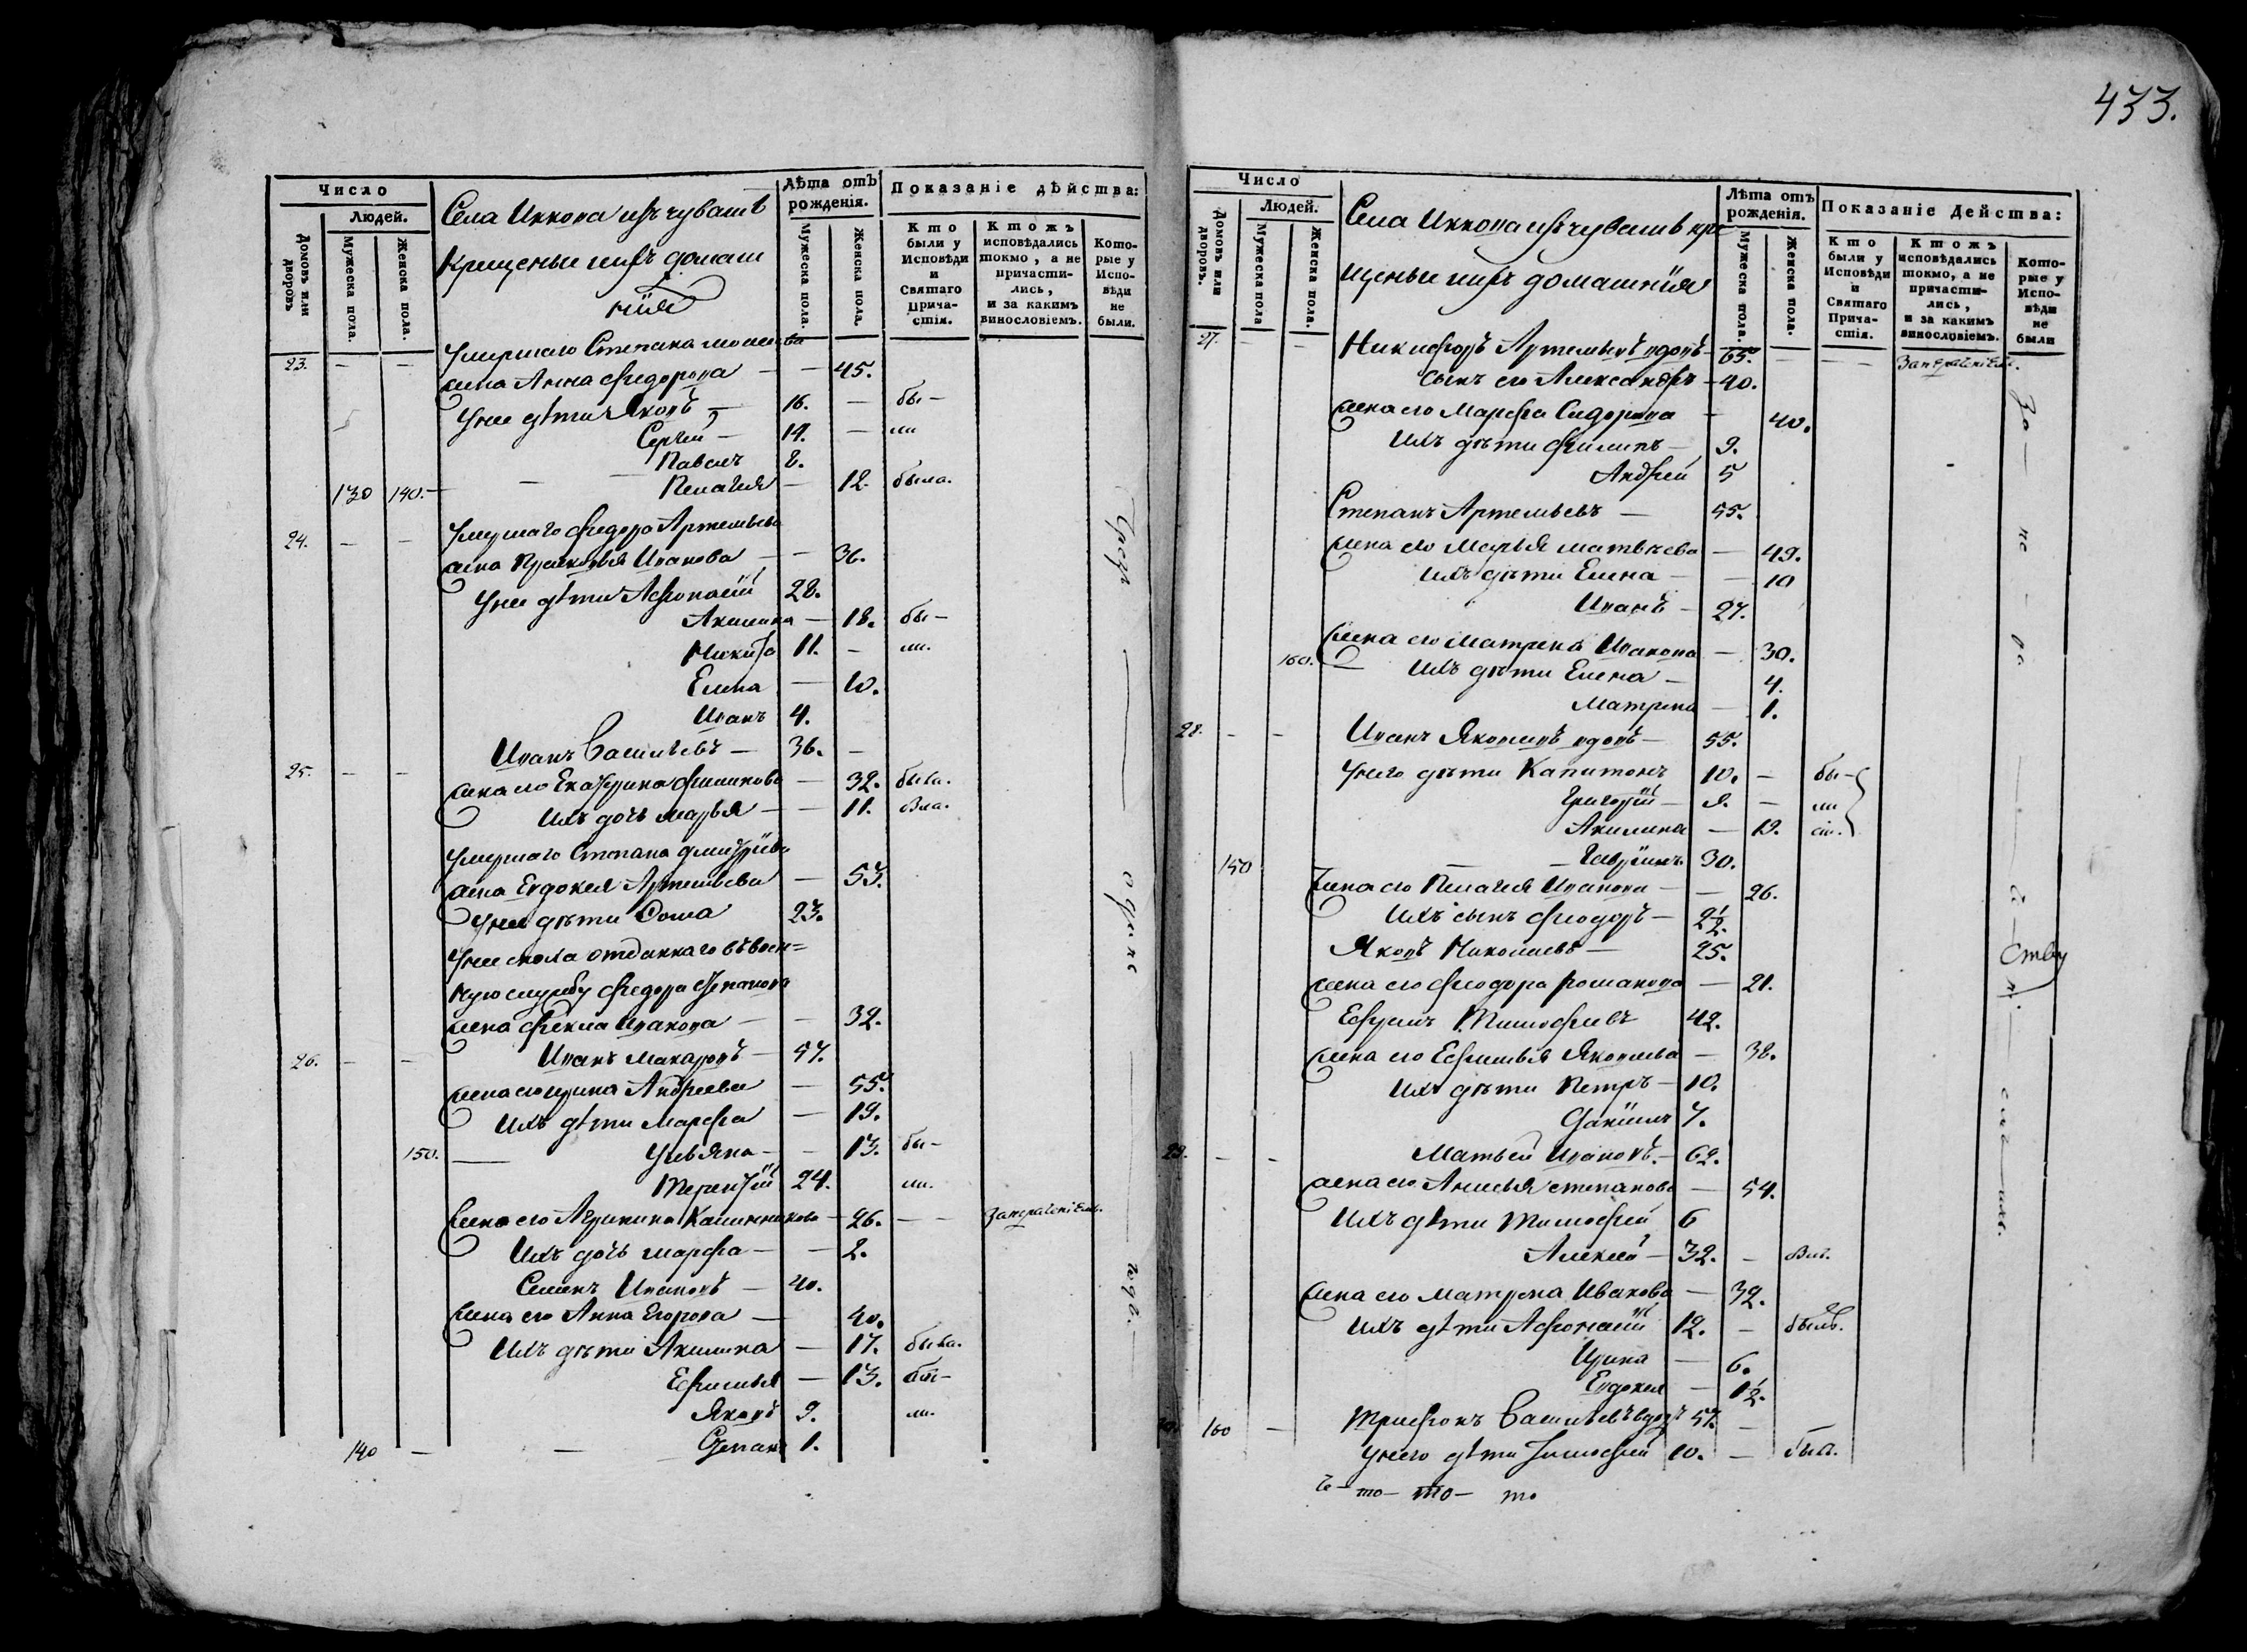 433.
Число
Людей.
Домовъ или дворовъ
Мужеска пола.
Женска пола.
Села Иккова изъ чувашъ
Крещеные и ихъ домаш
нiя
Лѣта отъ рожденiя.
Мужеска пола.
Женска пола.
Показанiе дѣйства:
Кто были у Исповѣди и Святаго Причастiя.
Ктожъ исповѣдались токмо, а не причастились, и за какимъ винословiемъ.
Которые у Исповѣди не были.
23. — — умершаго Степана
жена Анна Федорова — — 45.
у нее дѣти Яковъ — 16. — бы-
Сергѣй — 14. — ли
Павелъ 8.
130 140. — Пелагея — 12. была.
24. — — умершаго Федора Артемьева
жена Прасковья Иванова — — 36.
у нее дѣти Афонасiй 28.
Акилина — 18. бы-
Никита 11. — ли.
Елена — 10.
Иванъ 4.
Иванъ Васильевъ — 36. —
25. — — жена его Екатерина Филипова — 32. была.
ихъ дочь Марья — — 11.
умершаго Степана Дмитрiева
жена Евдокея Артемьева — 53.
у нее дѣти Фома 23.
у нее сноха отданнаго въ воен=
ную службу Федора Степанова
жена Фекла Иванова — — 32.
26. — — Иванъ Макаровъ — 57.
жена его Ирина Андреева — 55.
ихъ дѣти Марфа — 19.
150. — Ульяна — — 13. бы-
Терентiй 24. ли.
жена его Агрипина — 26. — —
ихъ дочь Марфа — — 2.
Семенъ Ивановъ — 40.
жена его Анна Егорова — 40.
ихъ дѣти Акилина — 17. была.
Ефимья — 13. бы-
Яковъ 9. ли.
140 — — Степанъ 1.
Число
Людей.
Домовъ или дворовъ.
Мужеска пола
Женска пола.
Села Иккова изъ чувашъ кре
щеные и ихъ домашнiя
Лѣта отъ рожденiя.
Мужеска пола.
Женска пола.
Показанiе Действа:
Кто были у Исповѣди и Святаго Причастiя.
Ктожъ исповѣдались токмо, а не причастились, и за какимъ винословiемъ.
Которые у Исповѣди не были
27. — — Никифоръ Артемьевъ вдовъ — 65. — —
сынъ его Александръ — 40.
жена его Марфа Сидорова — 40.
ихъ дѣти Филипъ — 9.
Андрей 5
Степанъ Артемьевъ — 55.
жена его Марья Матвѣева — 49.
ихъ дѣти Елена — — 10
Иванъ — 27.
жена его Матрена Иванова — 30.
160. — ихъ дѣти Елена — 4.
Матрена — 1.
28. — — Иванъ Яковлевъ вдовъ — 55.
у него дѣти Капитонъ 10. — бы-
Григорiй — — ли
Акилина — 19.
150 — — Гаврiилъ 30.
жена его Пелагея Иванова — — 26.
ихъ сынъ Феодоръ — 2½.
Яковъ Николаевъ — 25.
жена его Феодора Романова — 21.
Ефремъ Тимофѣевъ 42.
жена его Ефимья Яковлева — 38.
ихъ дѣти Петръ — 10.
Данiилъ 7.
29. — — Матвей Ивановъ — 62.
жена его Анисья Степанова — 54.
ихъ дѣти Тимофей 6
Алексей — 32. —
жена его Матрона Иванова — 32.
ихъ дѣти Афонасiй 12. — былъ.
Ирина — 6.
Евдокея — 1½.
160 — Трифонъ Васильевъ вдовъ 57. —
у него дѣти Тимофей 10. — былъ.
то — то — то